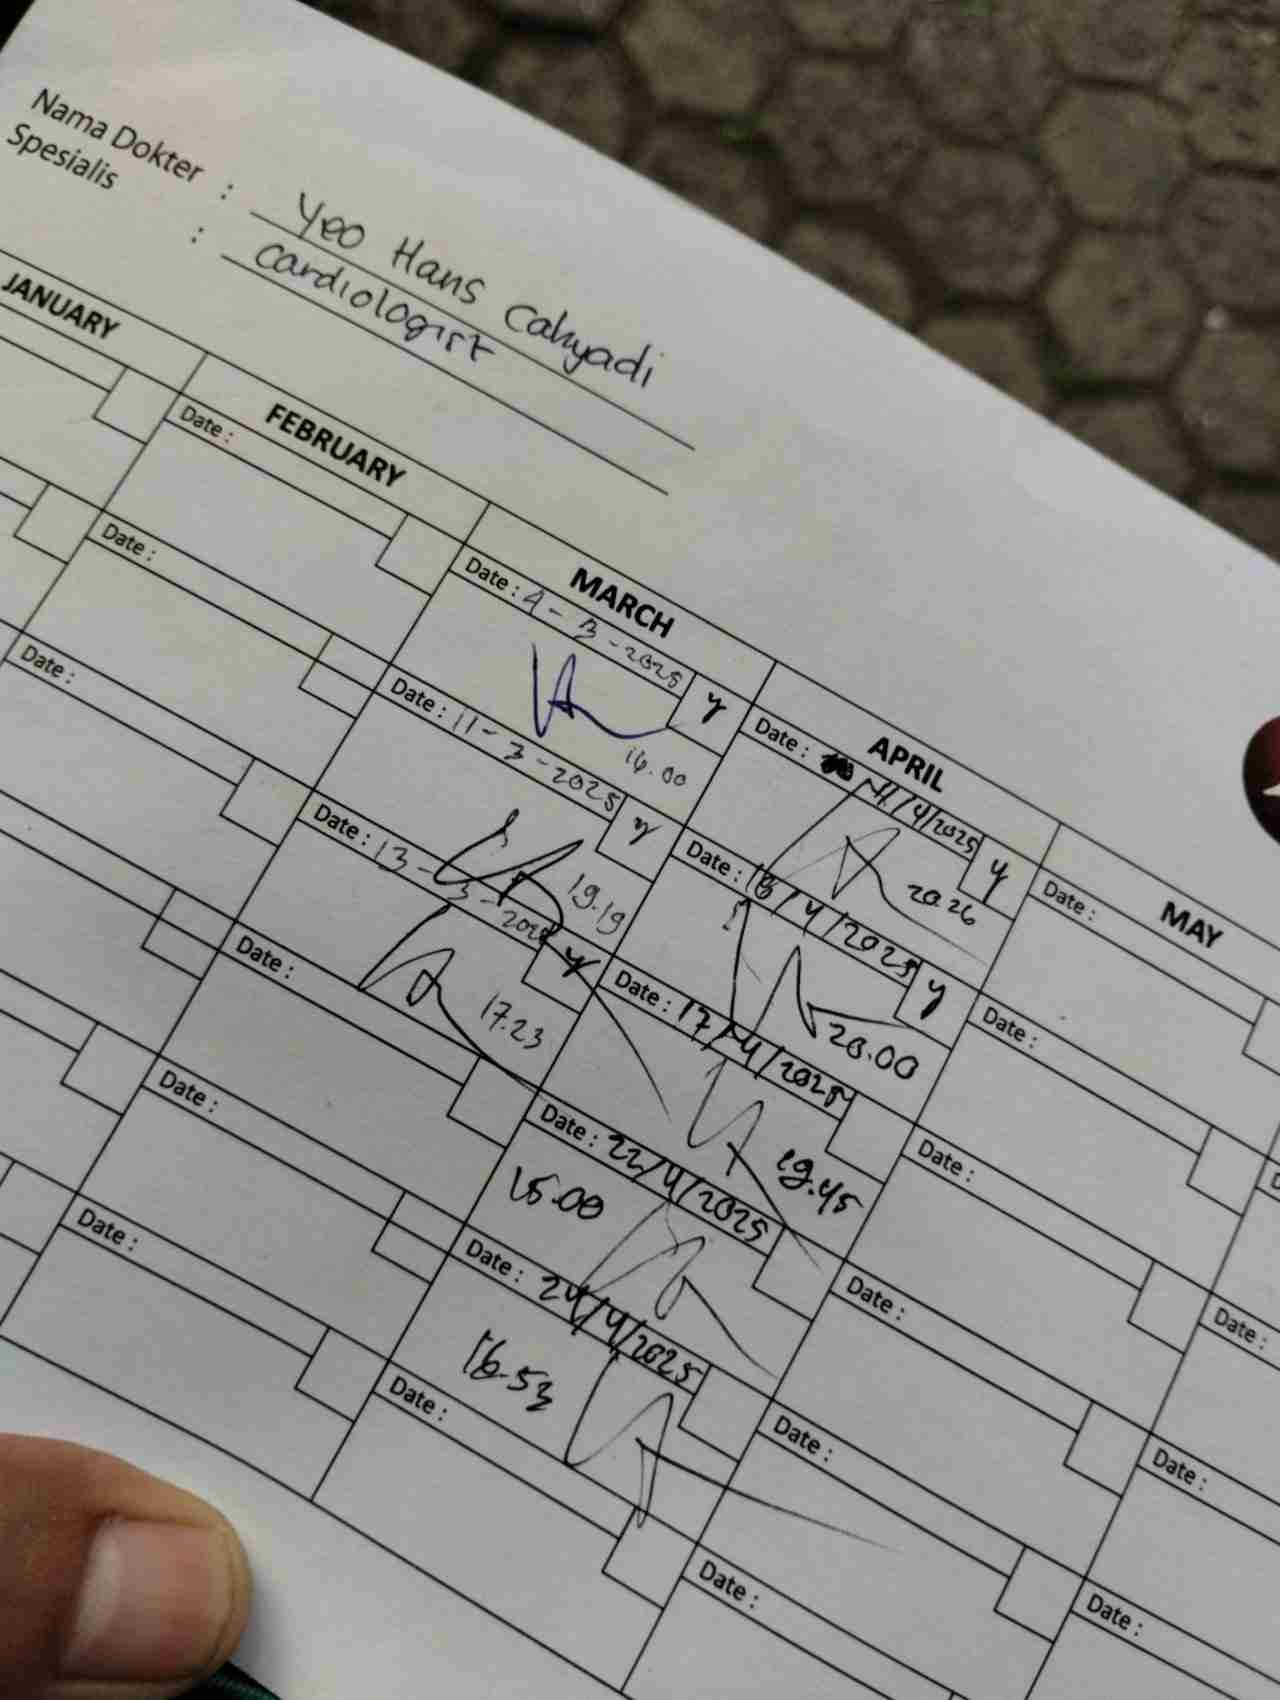 Nama Dokter : Yeo Hans Cahyadi
Spesialis : Cardiologist
JANUARY
FEBRUARY
MARCH
APRIL
MAY
Date :
Date :
Date :
Date :
Date :
Date :
Date : 4-3-2025 y
16.00
Date : 11-3-2025 y
19.19
Date : 13-3-2025 y
17.23
Date : 11/4/2025 y
20.26
Date : /4/2025 y
20.00
Date : 17/4/2025
19.45
Date : 22/4/2025
15.00
Date : 24/4/2025
16.53
Date :
Date :
Date :
Date :
Date :
Date :
Date :
Date :
Date :
Date :